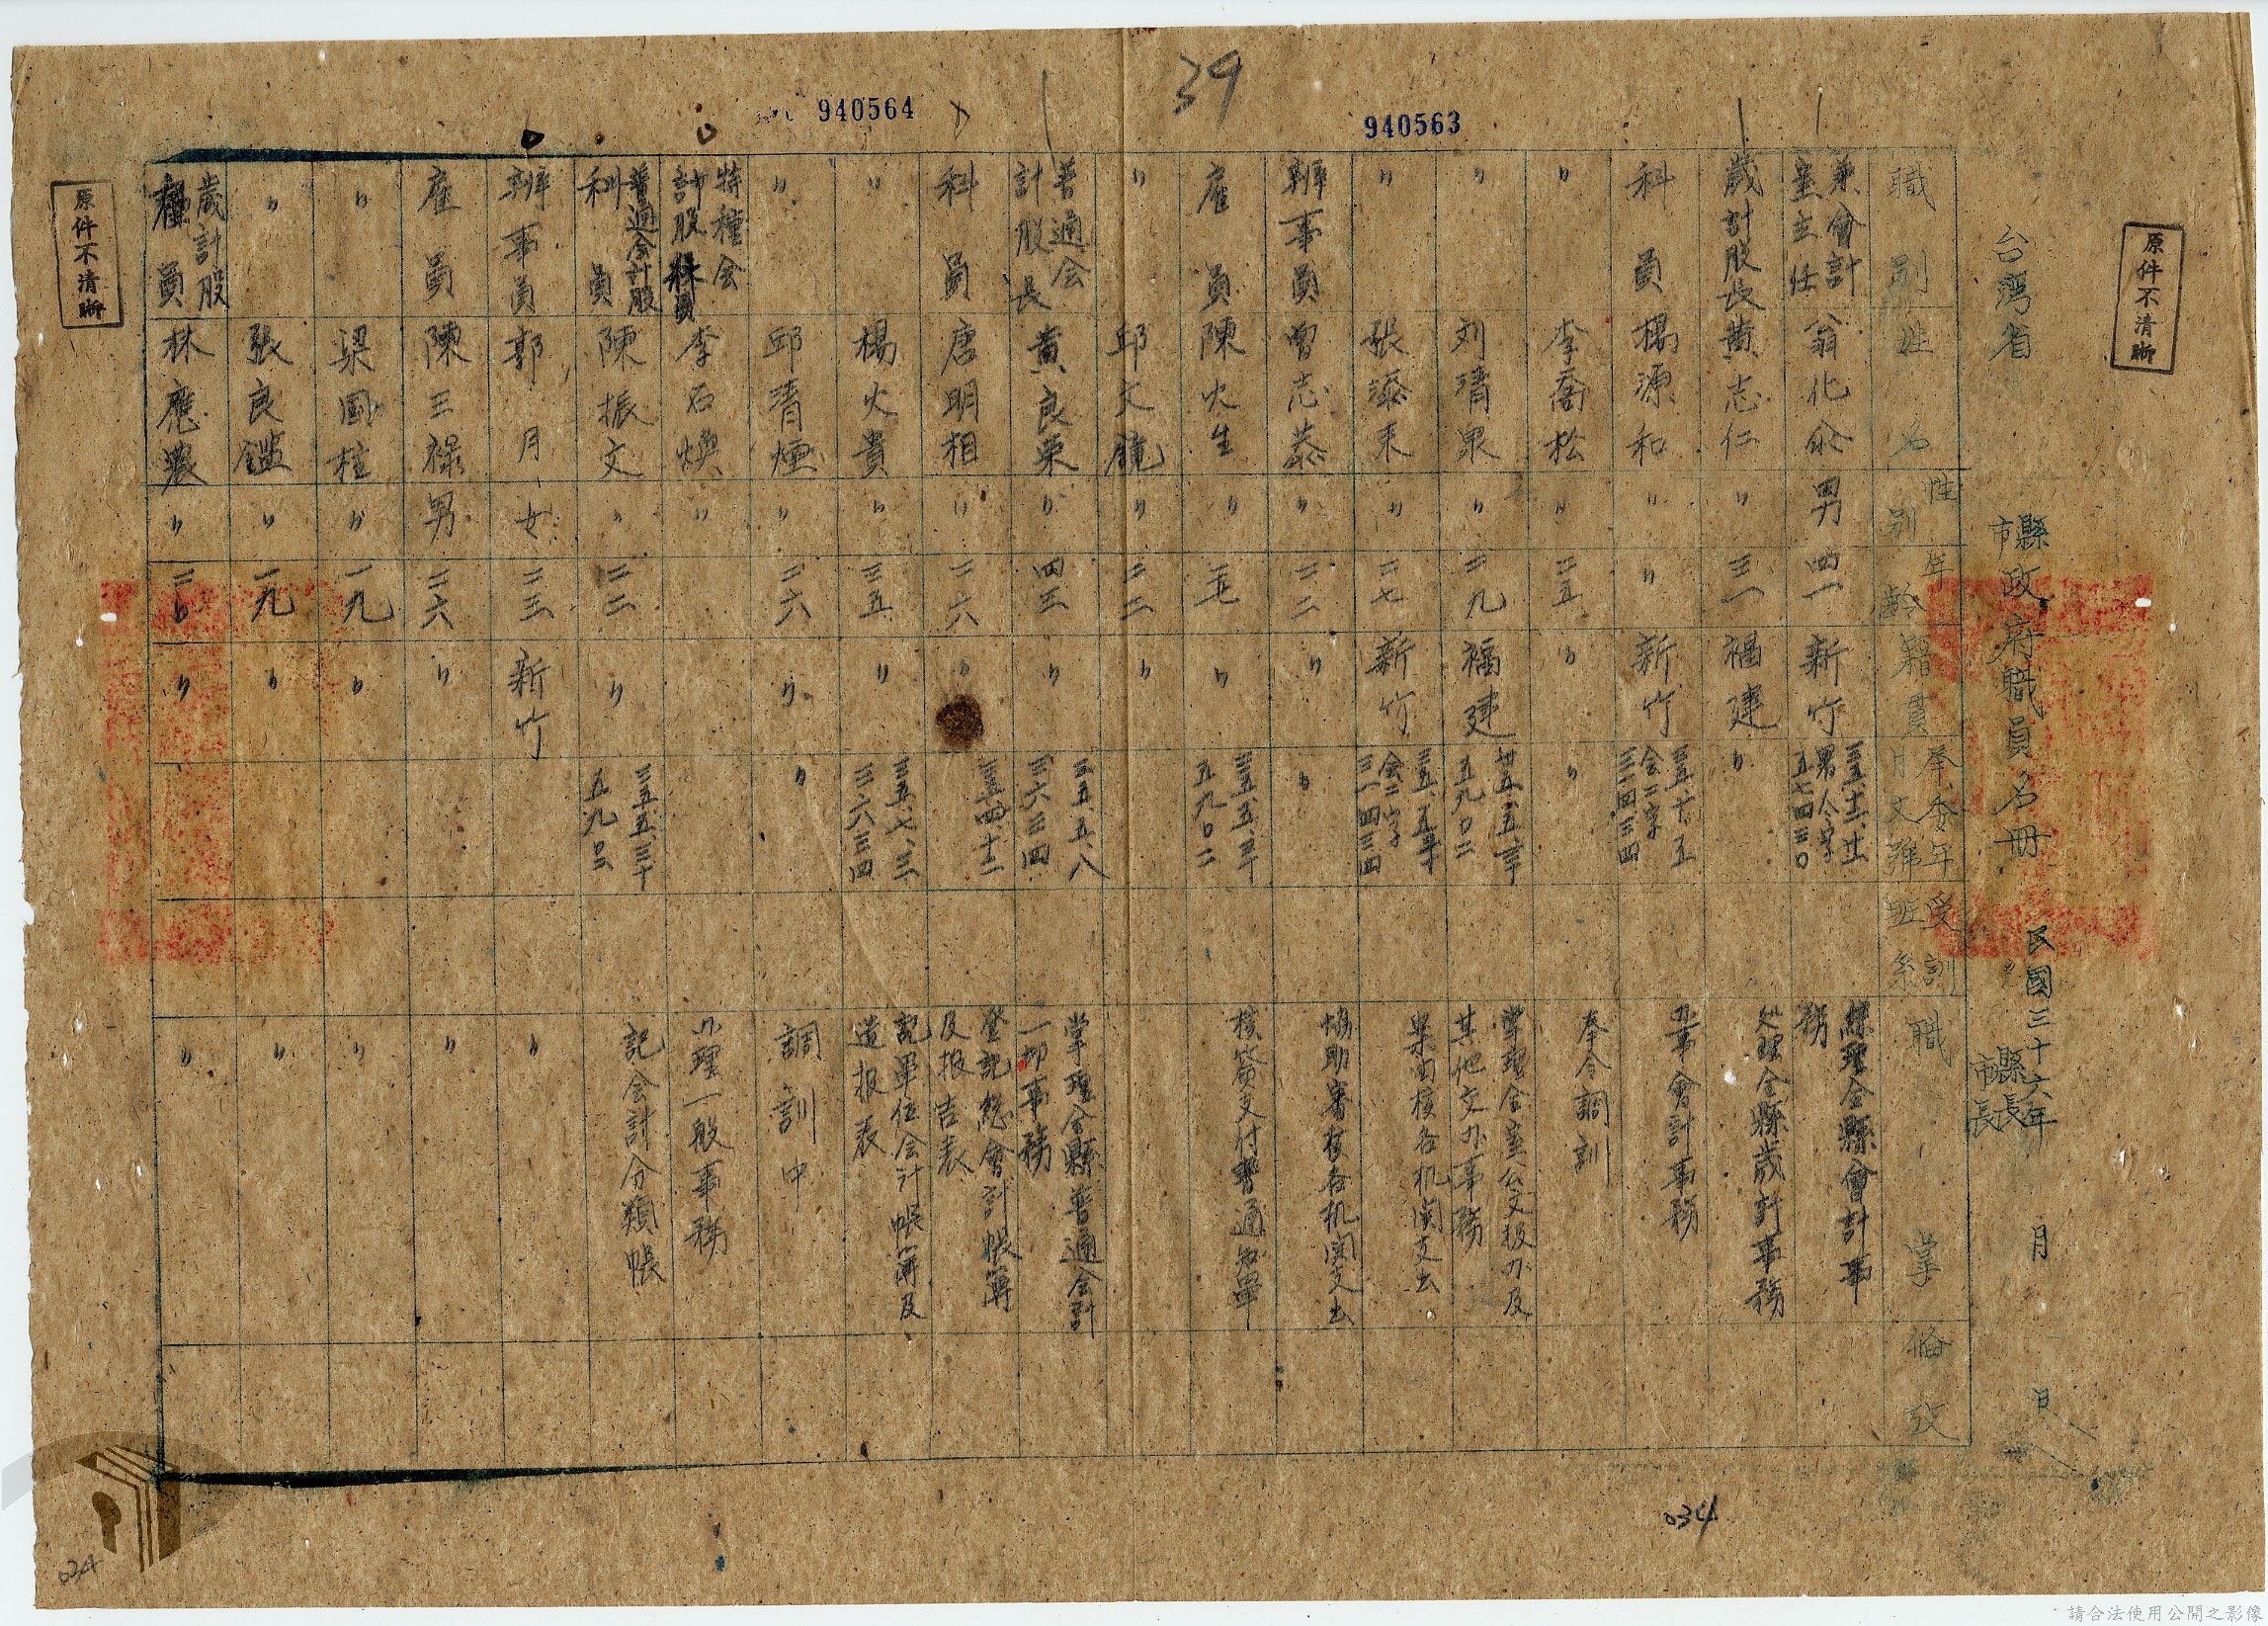 39
940563
940564
原件不清晰
台灣省
縣市政府職員名冊
民國三十六年 月 日
縣長
市長
職別 姓名 性別 年齡 籍貫 奉委年月文號 受訓班系 職掌 備攷
兼會計室主任 翁化 男 四一 新竹 綜理全縣會計事務
歲計股長 黃志仁 〃 三一 福建 〃 处理全縣歲計事務
科員 楊源和 〃 〃 新竹 三五、十、五 会二字 三一四三四 會計事務
〃 李喬松 〃 二五 〃 〃 奉令調訓
〃 刘清泉 〃 二九 福建 五九〇二 掌理全室公文报办及其他交办事務
〃 張添來 〃 二七 新竹 会二字 三一四三四 核各机関支出
辦事員 曾志恭 〃 二二 〃 〃 協助審核各机関支出
雇員 陳火生 〃 〃 五九〇二 核簽支付普通知單
〃 邱文鏡 〃 二二 〃
普通会計股長 黃良棠 〃 四三 〃 三五、五、八 三六三四 掌理全縣普通会計一部事務
科員 唐明相 〃 二六 〃 登記総會計帳簿及报告表
〃 楊火貴 〃 三五 〃 三五、七、三 三六三四 記單位会計帳簿及造报表
〃 邱清煙 〃 二六 〃 〃 調訓中
特種会計股科員 李石煥 〃 办理一般事務
普通会計股科員 陳振文 〃 二二 〃 三五、五、三十 五九〇二 記会計分類帳
辦事員 郭月 女 二三 新竹 〃
雇員 陳三祿 男 二六 〃 〃
〃 梁國柱 〃 一九 〃 〃
〃 張良鑑 〃 一九 〃 〃
歲計股 員 林應農 〃 二〇 〃 〃
原件不清晰
034
034
請合法使用公開之影像